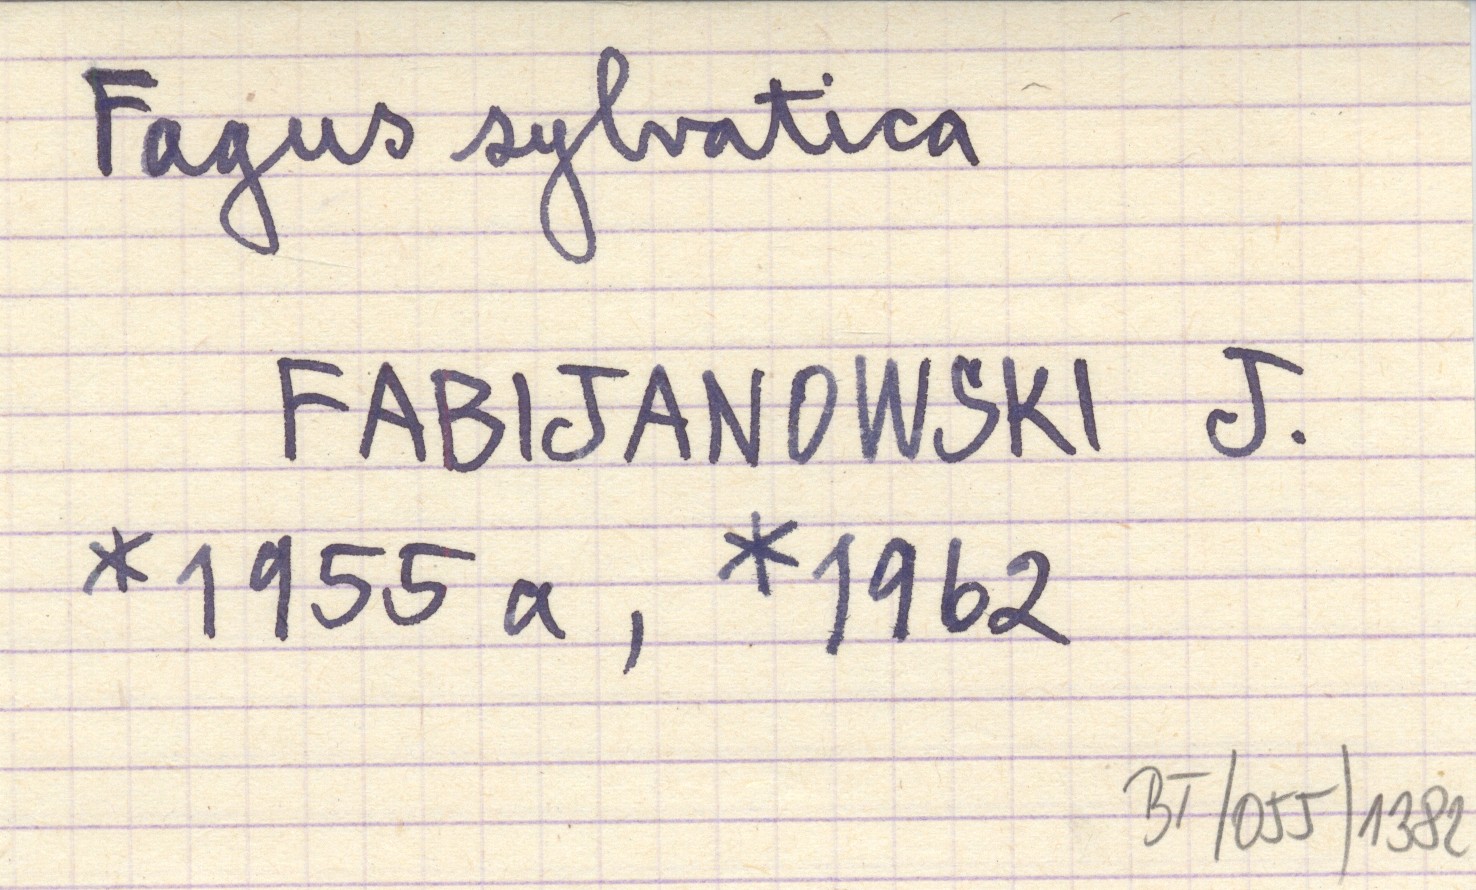 Fagus sylvatica
FABIJANOWSKI J.
*1955a, *1962
BT/055/1382